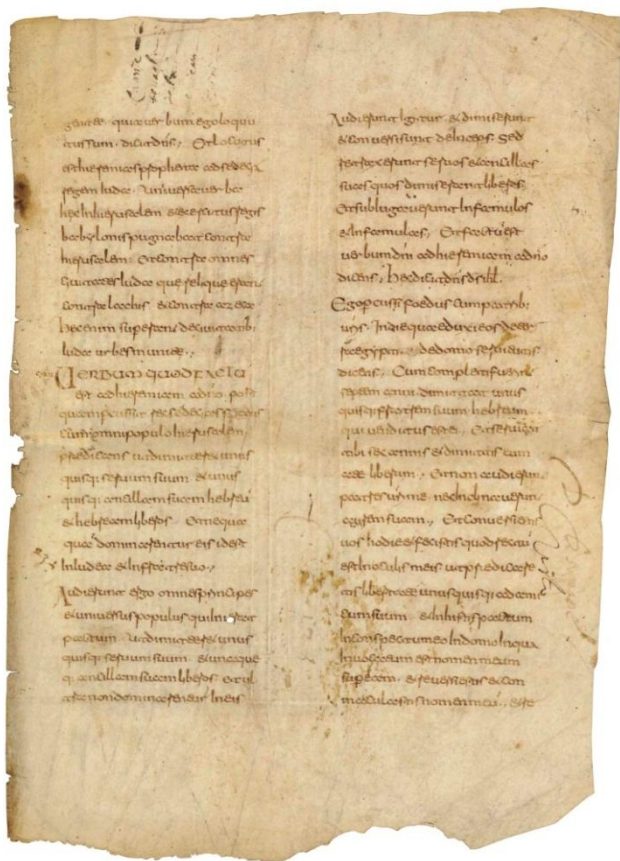 gent te quia uerbum ego loqu
utus sum dicit dns; Et locutus
est hieremias propheta ad sedecia
regem iuda uniuersa uerba
hec in hierusalem & exercitus regis
babylonis pugnabat contra
hierusalem Et contra omnes
ciuitates iuda que relique erant
contra lachis & contra azeca
hec enim supererant de ciuitatib;
iuda urbes munite
UERBUM QUOD FACTU
est ad hieremiam adno post
quam percussit rex sedecias pactu
cum omni populo in hierusalem
predicans ut dimitteret unus
quisq; seruum suum & unus
quisq; ancillam suam hebreu
& hebream liberos Et nequa
qua dominarentur eis id est
in iudeo & in fratre suo
Audierunt ergo omnes principes
& uniuersus populus qui inierat
pactum ut dimitteret unus
quisq; seruum suum & unusquis
q; ancillam suam liberos Et ul
tra non dominarentur in eis
Audierunt igitur & dimiserunt
& conuersi sunt deinceps Sed
retraxerunt seruos & ancillas
suas quos dimiserant liberos
Et subiugauerunt in famulos
& in famulas Et factu est
uerbum dni ad hieremiam adno
dicens Hec dicit dns ds isrl
Ego percussi foedus cum patrib;
uris In die qua eduxi eos de ter
ra egypti & de domo seruitutis
dicens Cum completi fuerint
septem anni dimittat unus
quisq; fratrem suum hebreum
qui uenditus est ei Et seruiet
tibi sex annis & dimittis eum
a te liberum Et non audierun
patres uestri me nec inclinauerun
aurem suam Et conuersi estis
uos hodie & fecistis quod rectu
est in oculis meis ut predicare
tis libertatem unusquisq; ad ami
cum suum & inistis pactum
in conspectu meo In domo In qua
Inuocatum est nomen meum
super eam & reuersi estis & com
maculastis nomen meu & re